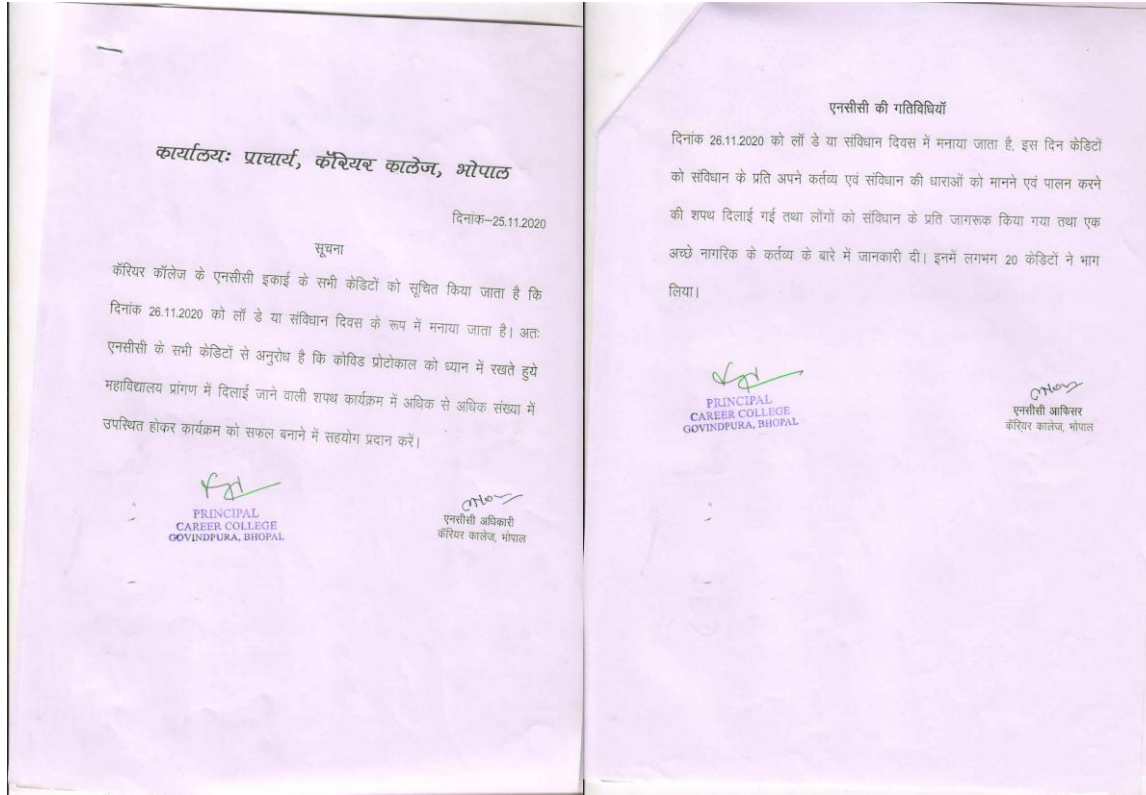 कार्यालयः प्राचार्य, कॅरियर कालेज, भोपाल
दिनांक–25.11.2020
सूचना
कॅरियर कॉलेज के एनसीसी इकाई के सभी केडिटों को सूचित किया जाता है कि
दिनांक 26.11.2020 को लॉ डे या संविधान दिवस के रूप में मनाया जाता है। अतः
एनसीसी के सभी केडिटों से अनुरोध है कि कोविड प्रोटोकाल को ध्यान में रखते हुये
महाविद्यालय प्रांगण में दिलाई जाने वाली शपथ कार्यक्रम में अधिक से अधिक संख्या में
उपस्थित होकर कार्यक्रम को सफल बनाने में सहयोग प्रदान करें।
PRINCIPAL
CAREER COLLEGE
GOVINDPURA, BHOPAL
एनसीसी अधिकारी
कॅरियर कालेज, भोपाल
एनसीसी की गतिविधियॉ
दिनांक 26.11.2020 को लॉ डे या संविधान दिवस में मनाया जाता है, इस दिन केडिटों
को संविधान के प्रति अपने कर्तव्य एवं संविधान की धाराओं को मानने एवं पालन करने
की शपथ दिलाई गई तथा लोंगों को संविधान के प्रति जागरूक किया गया तथा एक
अच्छे नागरिक के कर्तव्य के बारे में जानकारी दी। इनमें लगभग 20 केडिटों ने भाग
लिया।
PRINCIPAL
CAREER COLLEGE
GOVINDPURA, BHOPAL
एनसीसी आफिसर
कॅरियर कालेज, भोपाल